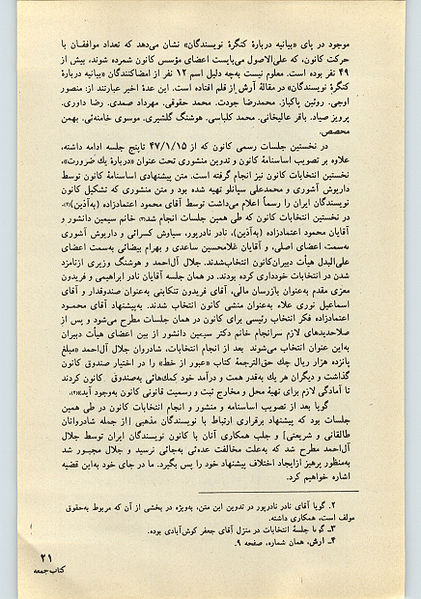 موجود در پای «بیانیه دربارهٔ کنگرهٔ نویسندگان» نشان می‌دهد که تعداد موافقان با
حرکت کانون، که علی‌الاصول می‌بایست اعضای مؤسس کانون شمرده شوند، بیش از
۴۹ نفر بوده است. معلوم نیست به‌چه دلیل اسم ۱۲ نفر از امضاکنندگان «بیانیه دربارهٔ
کنگرهٔ نویسندگان» در مقالهٔ آرش از قلم افتاده است. این عدهٔ اخیر عبارتند از: منصور
اوجی. روئین پاکباز. محمدرضا جودت. محمد حقوقی. مهرداد صمدی. رضا داوری.
پرویز صیاد. باقر عالیخانی. محمد کلباسی. هوشنگ گلشیری. موسوی خامنه‌ئی. بهمن
محصص.
در نخستین جلسات رسمی کانون که از ۴۷/۱/۱۵ تا پنج جلسه ادامه داشته،
علاوه بر تصویب اساسنامهٔ کانون و تدوین منشوری تحت عنوان «دربارهٔ یك ضرورت»،
نخستین انتخابات کانون نیز انجام گرفته است. متن پیشنهادی اساسنامهٔ کانون توسط
داریوش آشوری و محمدعلی سپانلو تهیه شده بود و متن منشوری که تشکیل کانون
نویسندگان ایران را رسماً اعلام می‌داشت توسط آقای محمود اعتمادزاده (به‌آذین)(۲).
در نخستین انتخابات کانون که طی همین جلسات انجام شد(۳) خانم سیمین دانشور و
آقایان محمود اعتمادزاده (به‌آذین)، نادر نادرپور، سیاوش کسرائی و داریوش آشوری
به‌سمت اعضای اصلی، و آقایان غلامحسین ساعدی و بهرام بیضائی به‌سمت اعضای
علی‌البدل هیأت دبیران کانون انتخاب‌شدند. جلال آل‌احمد و هوشنگ وزیری از نامزد
شدن در انتخابات خودداری کرده بودند. در همان جلسه آقایان نادر ابراهیمی و فریدون
معزی مقدم به‌عنوان بازرسان مالی، آقای فریدون تنکابنی به‌عنوان صندوقدار و آقای
اسماعیل نوری علاء به‌عنوان منشی کانون انتخاب شدند. به‌پیشنهاد آقای محمود
اعتمادزاده فکر انتخاب رئیسی برای کانون در همان جلسات مطرح می‌شود و پس از
صلاحدیدهای لازم سرانجام خانم دکتر سیمین دانشور از بین اعضای هیأت دبیران
به‌این عنوان انتخاب می‌شوند. بعد از انجام انتخابات، شادروان جلال آل‌احمد «مبلغ
پانزده هزار ریال چك حق‌الترجمهٔ کتاب «عبور از خط» را در اختیار صندوق کانون
گذاشت و دیگران هر یك به‌قدر همت و درآمد خود کمك‌هائی به‌صندوق کانون کردند
تا آمادگی لازم برای تهیهٔ محل و مخارج ثبت و رسمیت قانونی کانون به‌وجود آید»(۴).
گویا بعد از تصویب اساسنامه و منشور و انجام انتخابات کانون در طی همین
جلسات بود که پیشنهاد برقراری ارتباط با نویسندگان مذهبی [از جمله شادروانان
طالقانی و شریعتی] و جلب همکاری آنان با کانون نویسندگان ایران توسط جلال
آل‌احمد مطرح شد که به‌علت مخالفت عده‌ئی به‌جائی نرسید و جلال مجبور شد
به‌منظور پرهیز از ایجاد اختلاف پیشنهاد خود را پس بگیرد. ما در جای خود به‌این قضیه
اشاره خواهیم کرد.
۲. گویا آقای نادر نادرپور در تدوین این متن، به‌ویژه در بخشی از آن که مربوط به‌حقوق
مولف است، همکاری داشته.
۳ـ گویا جلسهٔ انتخابات در منزل آقای جعفر کوش‌آبادی بوده.
۴ـ آرش، همان شماره، صفحه ۹.
۲۱
کتاب جمعه